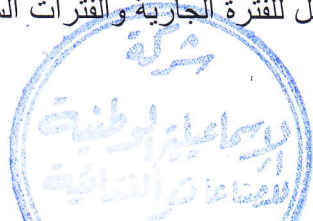 ل للفترة الجارية والفترات الس
شركة
الإسماعيلية الوطنية
للصناعات الغذائية